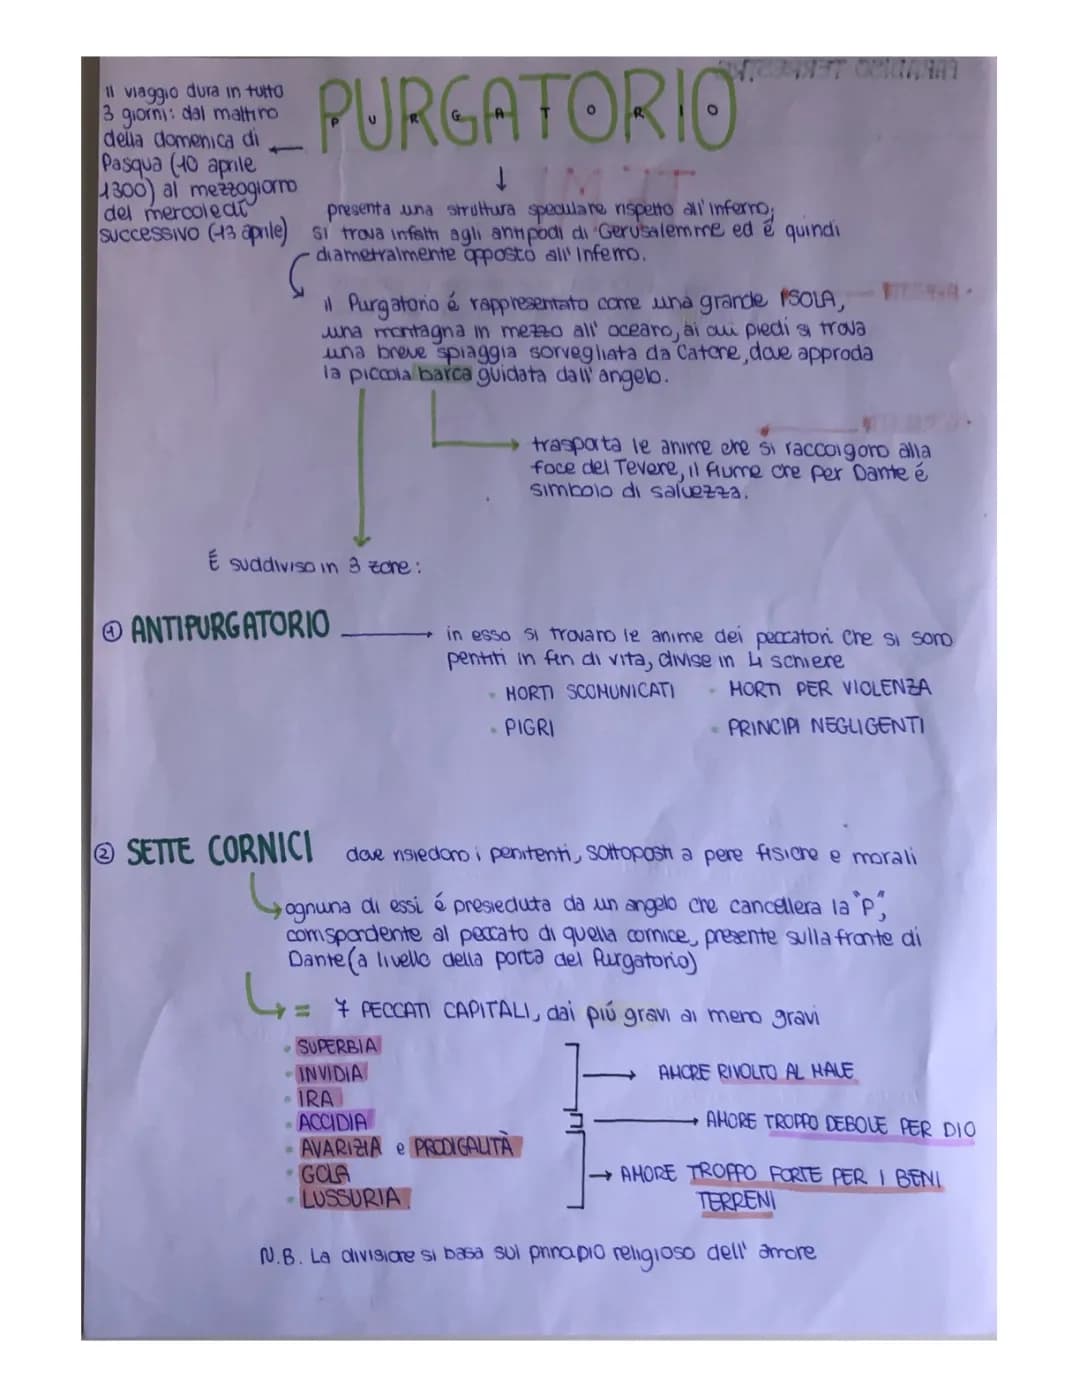 il viaggio dura in tutto
3 giorni: dal mattino
della domenica di
Pasqua (10 aprile
1300) al mezzogiorno
del mercoledì
successivo (13 aprile)
PURGATORIO
P U R G A T O R I O
presenta una struttura speculare rispetto all'inferno;
si trova infatti agli antipodi di Gerusalemme ed é quindi
diametralmente opposto all'Inferno.
il Purgatorio é rappresentato come una grande ISOLA,
una montagna in mezzo all'oceano, ai cui piedi si trova
una breve spiaggia sorvegliata da Catone, dove approda
la piccola barca guidata dall'angelo.
trasporta le anime che si raccolgono alla
foce del Tevere, il fiume che per Dante é
simbolo di salvezza.
É suddiviso in 3 zone:
① ANTIPURGATORIO
in esso si trovano le anime dei peccatori che si sono
pentiti in fin di vita, divise in 4 schiere
• MORTI SCOMUNICATI • MORTI PER VIOLENZA
• PIGRI • PRINCIPI NEGLIGENTI
② SETTE CORNICI dove risiedono i penitenti, sottoposti a pene fisiche e morali
ognuna di essi é presieduta da un angelo che cancellera la "P",
corrispondente al peccato di quella cornice, presente sulla fronte di
Dante (a livello della porta del Purgatorio)
= 7 PECCATI CAPITALI, dai piú gravi ai meno gravi
• SUPERBIA
• INVIDIA
• IRA
• ACCIDIA
• AVARIZIA e PRODIGALITÀ
• GOLA
• LUSSURIA
AMORE RIVOLTO AL MALE
AMORE TROPPO DEBOLE PER DIO
AMORE TROPPO FORTE PER I BENI
TERRENI
N.B. La divisione si basa sul principio religioso dell'amore